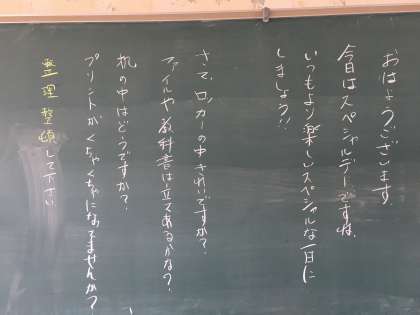 おはようございます
今日はスペシャルデーですね。
いつもより楽しいスペシャルな一日に
しましょう!!
さて、ロッカーの中きれいですか?
ファイルや教科書は立ててあるかな?
机の中はどうですか?
プリントがくちゃくちゃになってませんか?
整理整頓して下さい